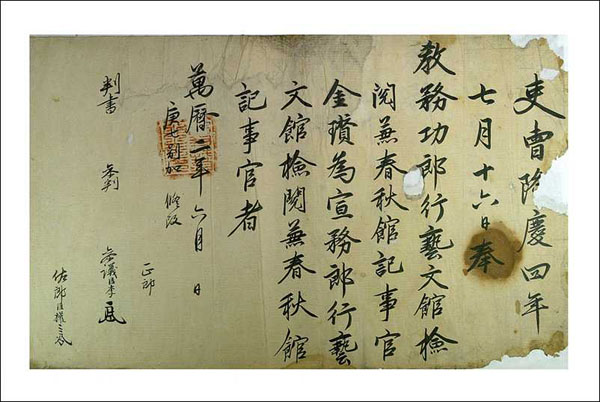 吏曹隆慶四年
七月十六日奉
敎務功郎行藝文館檢
閱兼春秋館記事官
金瓚為宣務郎行藝
文館檢閱兼春秋館
記事官者
萬曆二年六月 日
庚七別加 修改
判書 參判 參議臣李
正郎
佐郎臣權